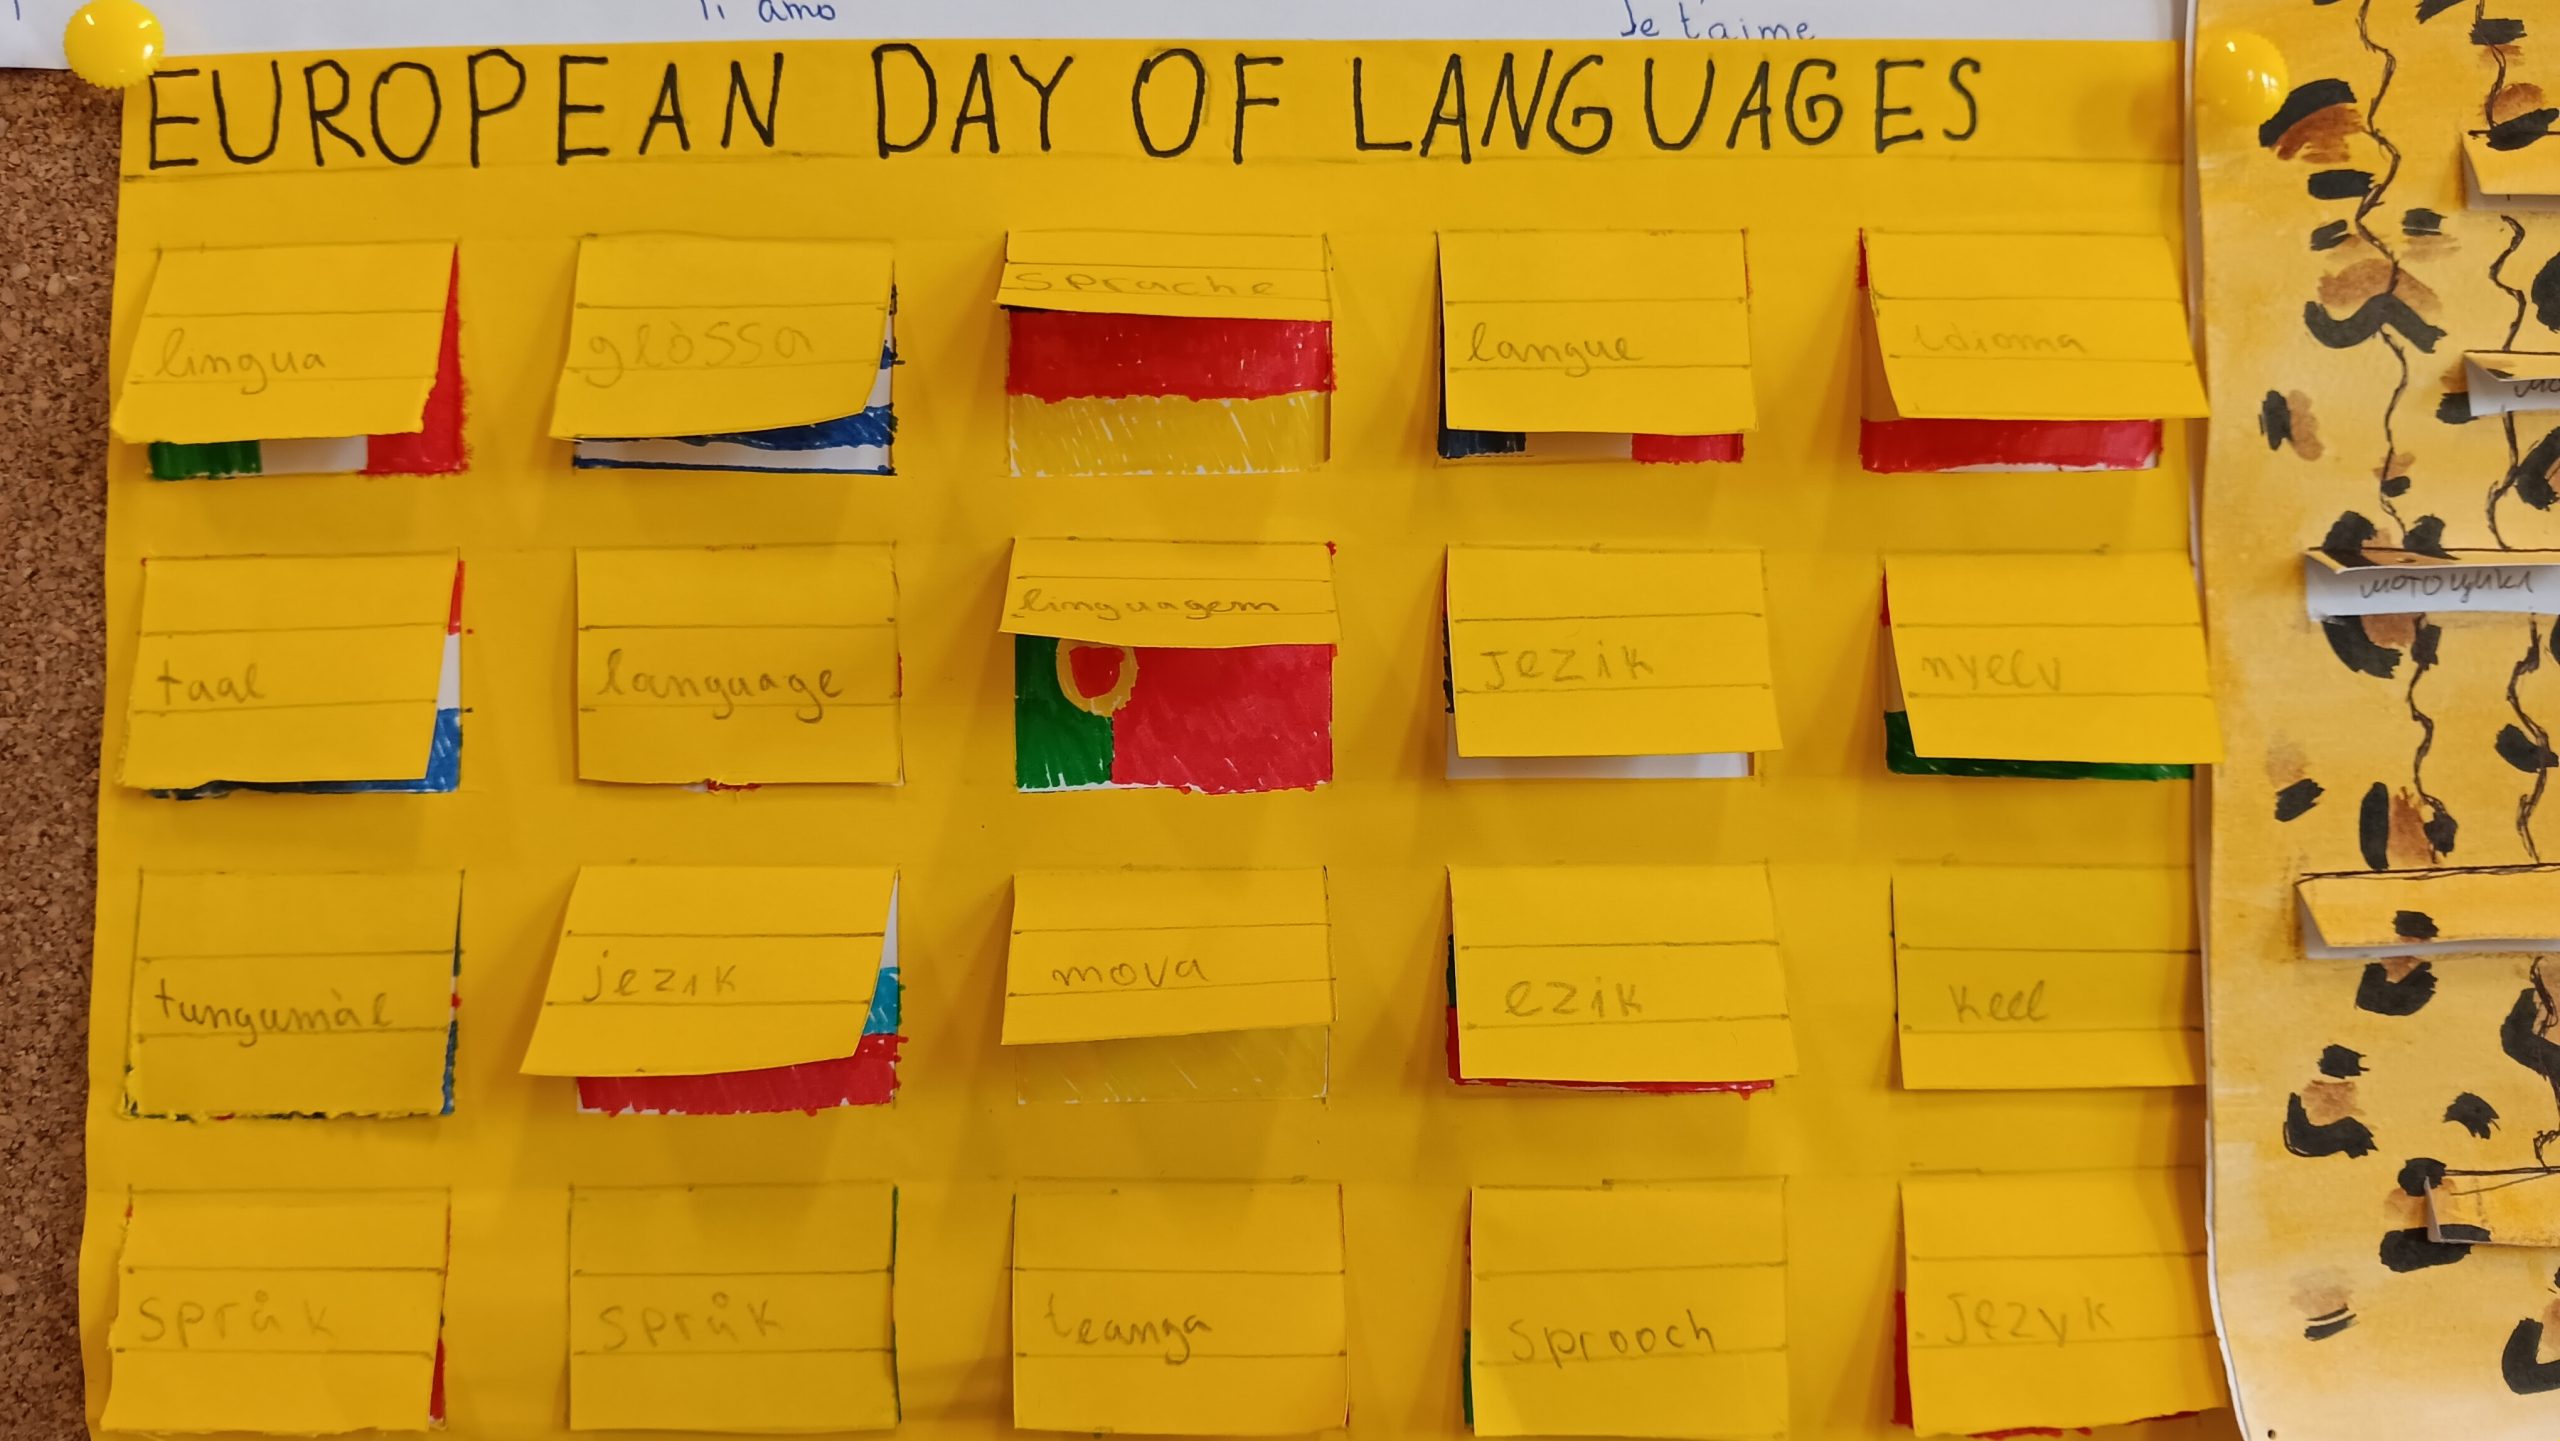 Ti amo
Je t'aime
EUROPEAN DAY OF LANGUAGES
lingua
glòssa
Sprache
langue
idioma
taal
language
linguagem
Jezik
nyelv
tungumàl
jezik
mova
ezik
keel
språk
språk
teanga
Sprooch
Język
мотоцикл